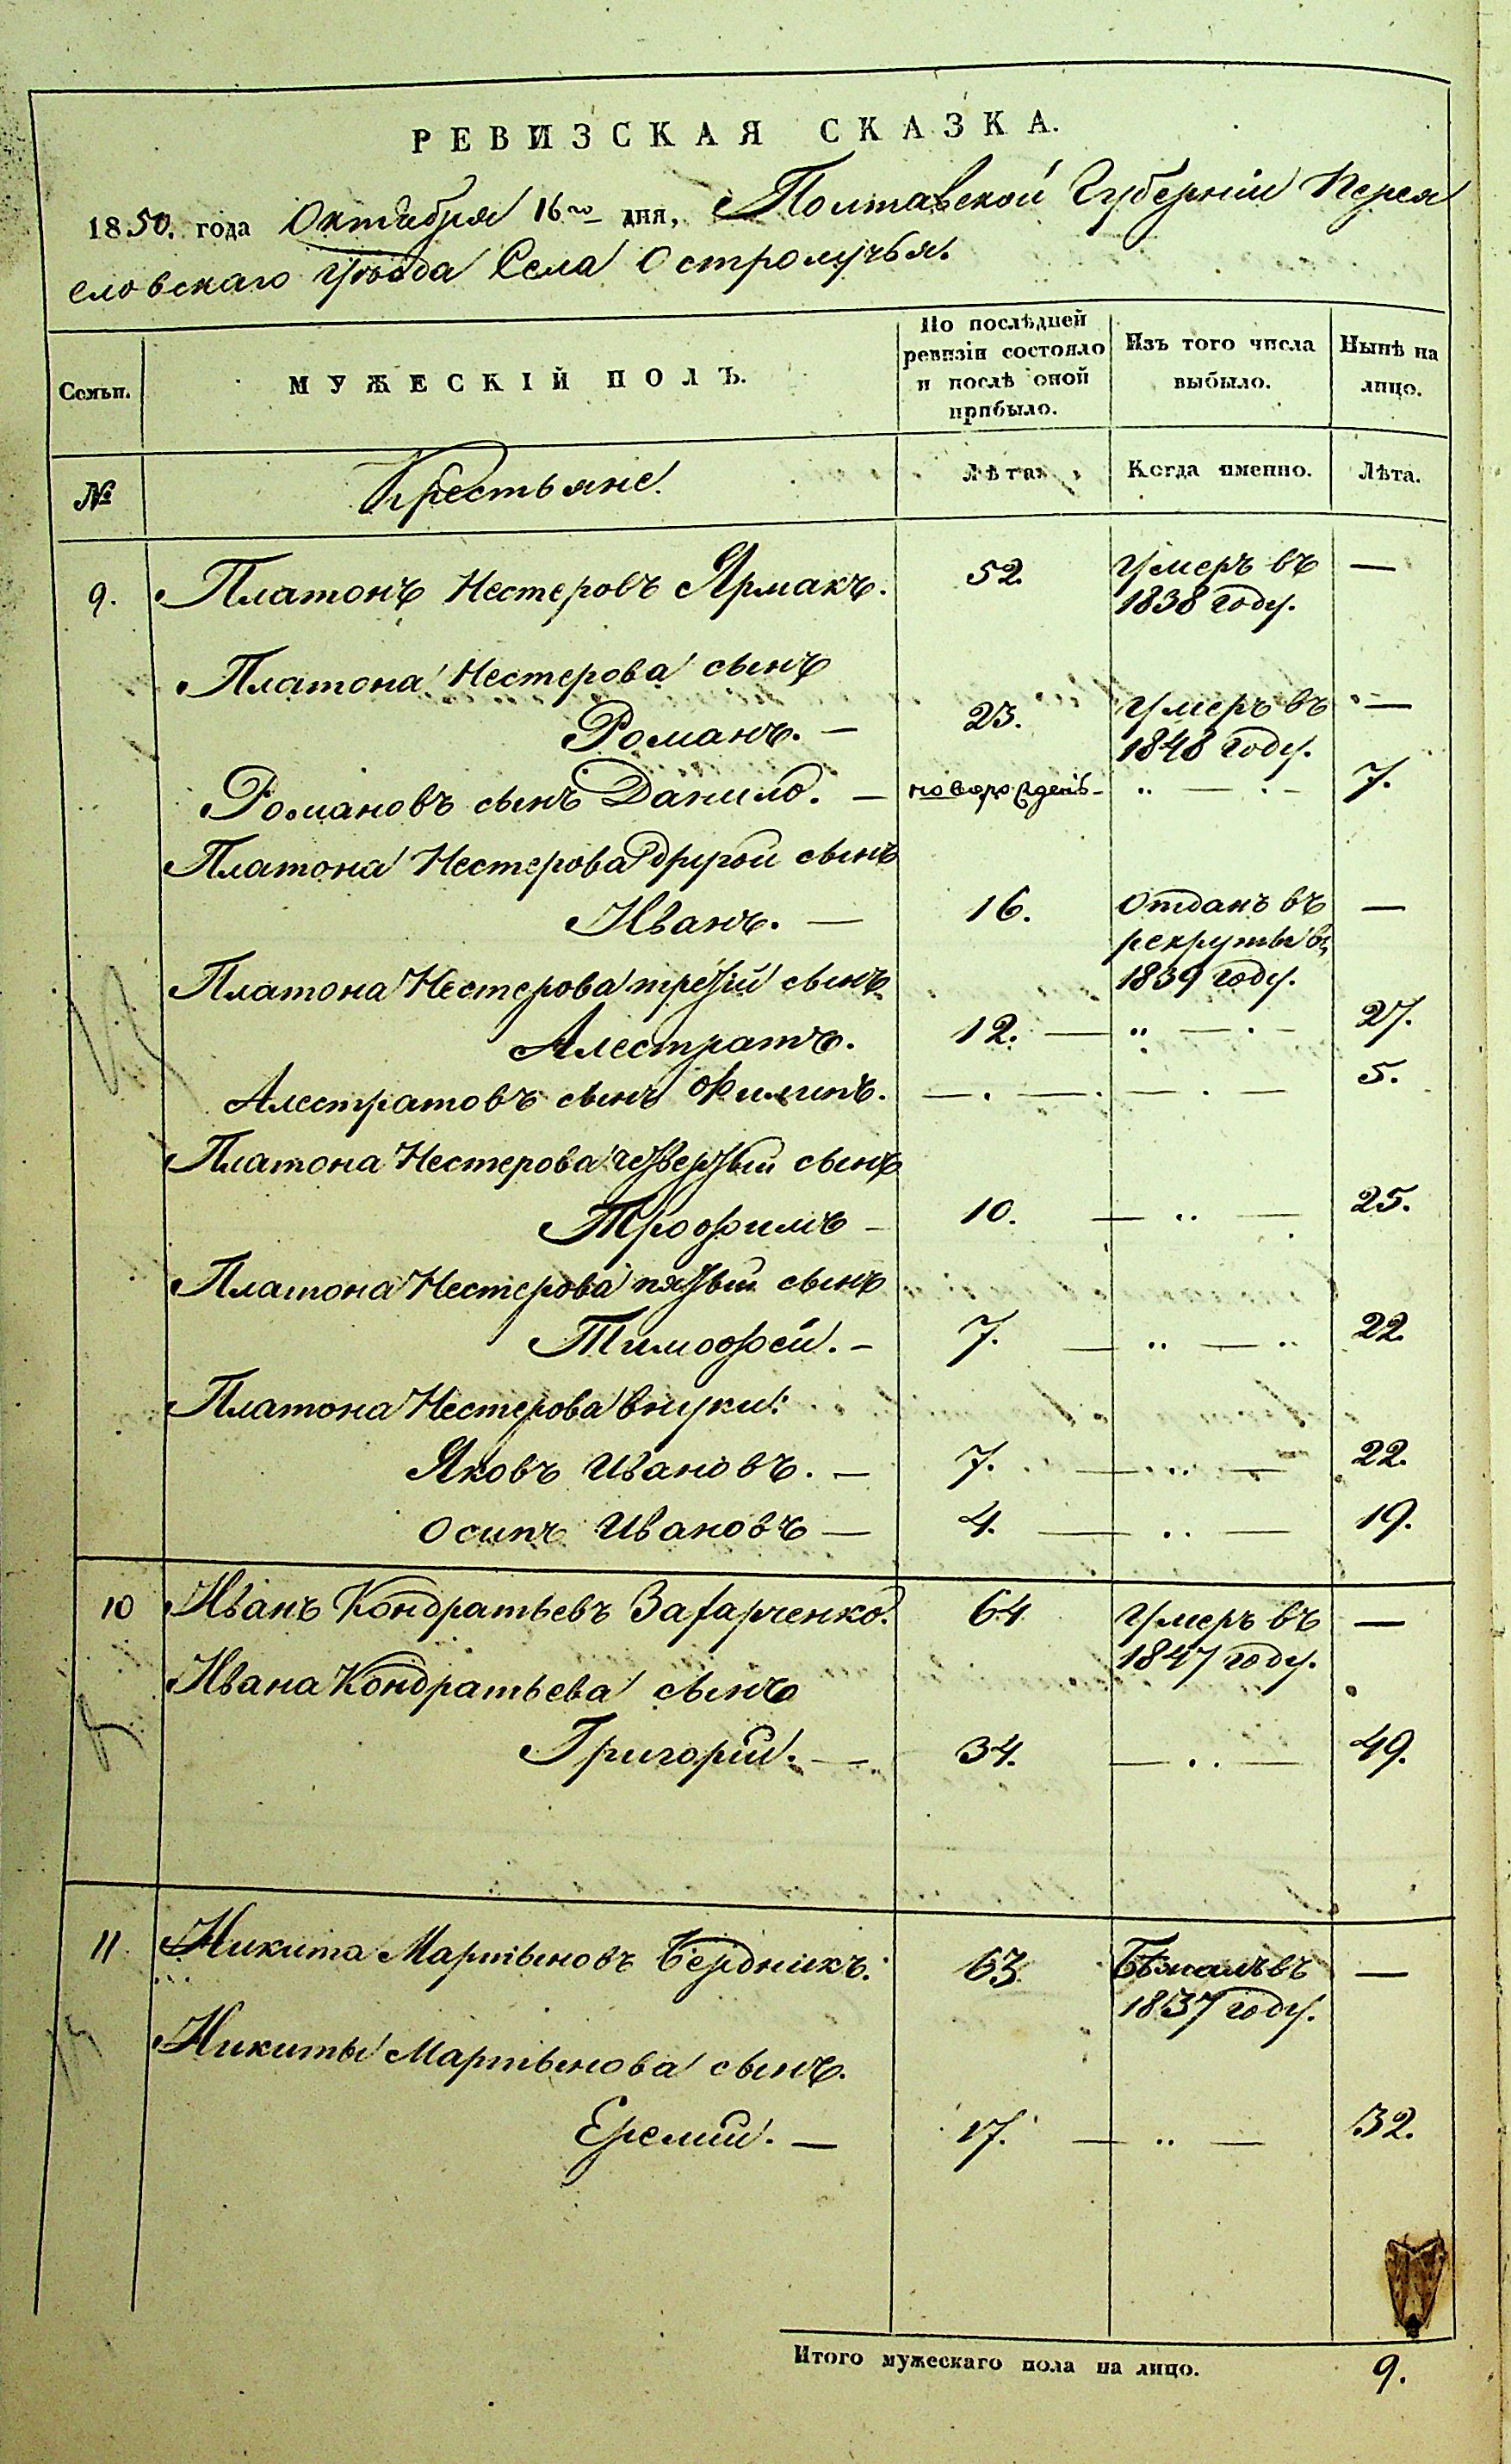 РЕВИЗСКАЯ СКАЗКА.
1850. года Октября 16го дня, Полтавской Губерніи Перея
словскаго уѣзда Села Остролучья.
Семьи.
МУЖЕСКІЙ ПОЛЪ.
По послѣдней
ревизіи состояло
и послѣ оной
прибыло.
Изъ того числа
выбыло.
Нынѣ на
лицо.
№ Крестьяне. Лѣта. Когда именно. Лѣта.
9. Платонъ Нестеровъ Ярмакъ. 52. умеръ въ —
1838 году.
Платона Нестерова сынъ
Романъ. — 23. умеръ въ —
1848 году.
Романовъ сынъ Данило. — новорожденъ — „ — . — 7.
Платона Нестерова другой сынъ
Иванъ. — 16. Отданъ въ —
рекруты въ
1839 году.
Платона Нестерова третій сынъ
Алестратъ. 12. — „ — . — 27.
Алестратовъ сынъ Филипъ. — . — . — . — 5.
Платона Нестерова четвертый сынъ
Трофимъ — 10. — „ — 25.
Платона Нестерова пятый сынъ
Тимофей. — 7. — „ — „ 22.
Платона Нестерова внуки:
Яковъ Ивановъ. — 7. — „ — 22.
Осипъ Ивановъ — 4. — „ — 19.
10 Иванъ Кондратьевъ Захарченко. 64 умеръ въ —
1847 году.
Ивана Кондратьева сынъ
Григорій. — 34. — „ — 49.
11 Никита Мартыновъ Бердникъ. 63. Бѣжалъ въ —
1837 году.
Никиты Мартынова сынъ.
Еремій. — 17. — „ — 32.
Итого мужескаго пола на лицо. 9.